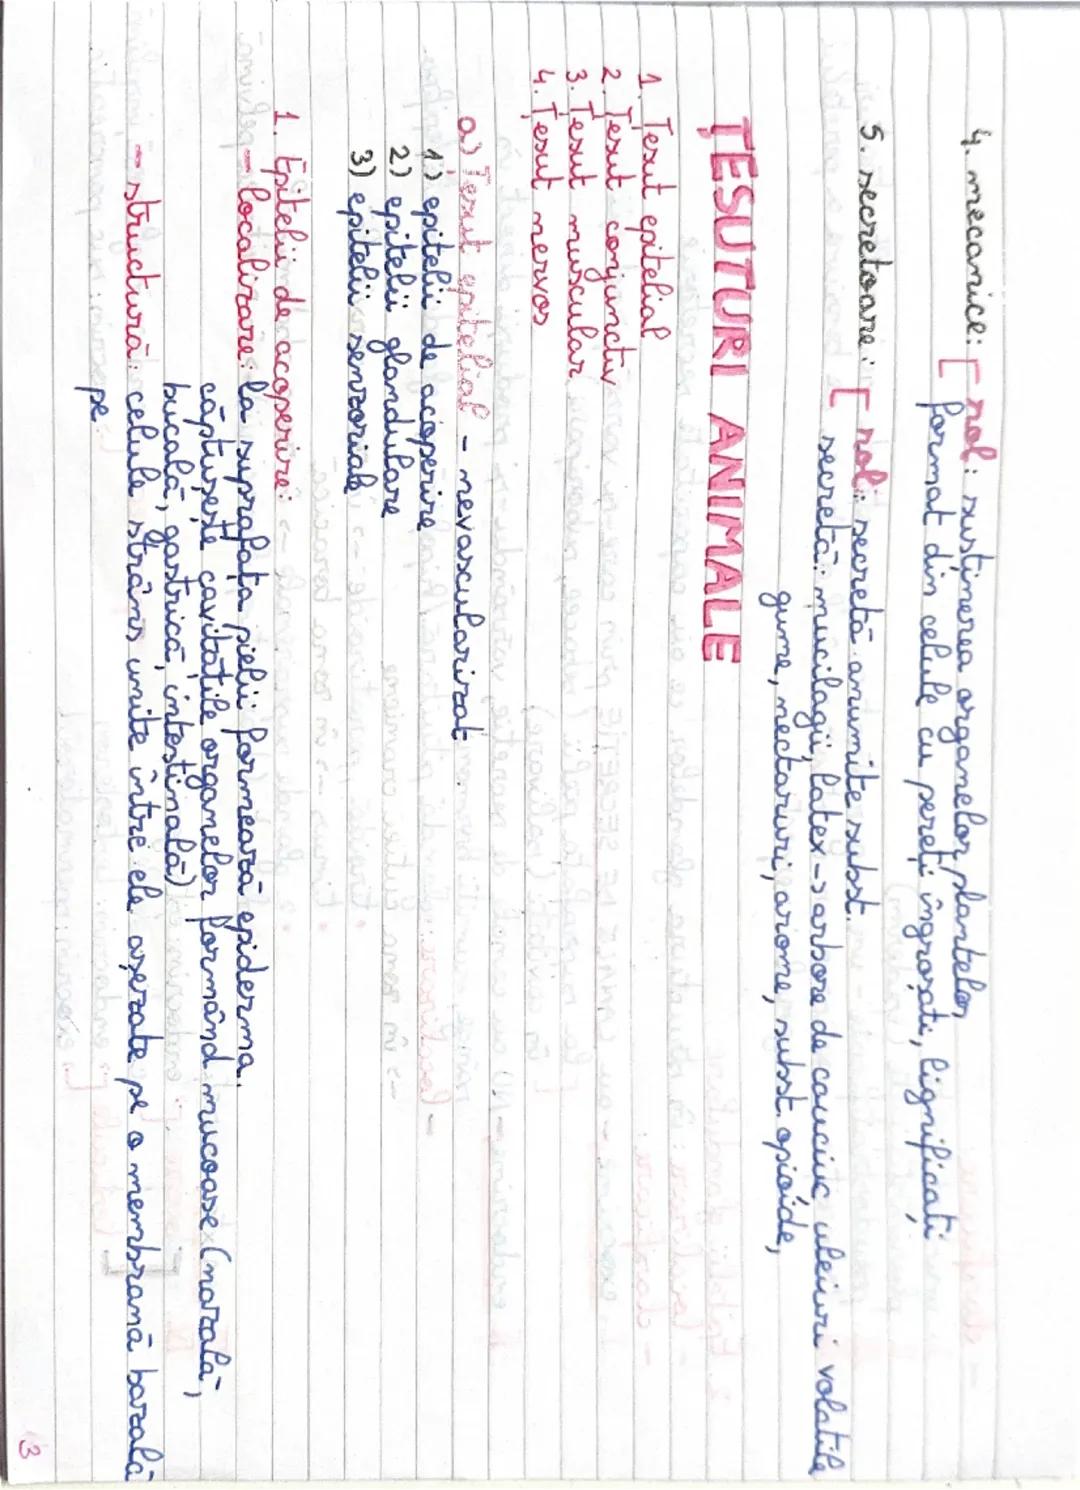 4. mecanice: [rol: susținerea organelor plantelor
format din celule cu pereți îngroșați, lignificati
5. secretoare: [rol: secretă anumite subst.
secretă: mucilagii, latex -> arbore de cauciuc, uleiuri volatile
gume, nectaruri, arome, subst. opioide,
ȚESUTURI ANIMALE
1. Țesut epitelial
2. Țesut conjunctiv
3. Țesut muscular
4. Țesut nervos
a) Țesut epitelial - nevascularizat
1) epitelii de acoperire
2) epitelii glandulare
3) epitelii senzoriale
1. Epitelii de acoperire:
- localizare: la suprafața pielii formează epiderma.
căptușește cavitățile organelor formând mucoase (nazală,
bucală, gastrică, intestinală)
- structură: celule strâns unite între ele așezate pe o membrană bazală
pe
3